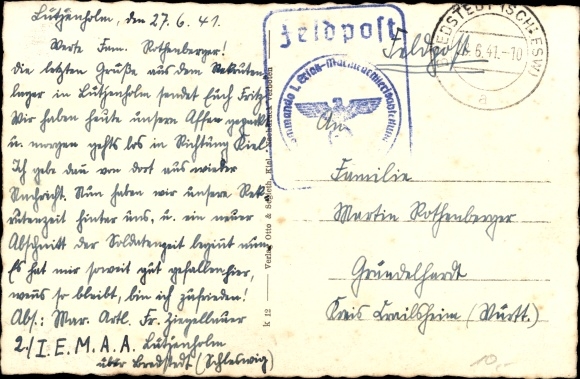 Lützenholm, den 27.6.41.
Werte Fam. Rothenberger!
die letzten Grüße aus dem Rekruten-
lager in Lützenholm sendet Euch Fritz.
Wir haben heute unsere Affen gepackt
u. morgen gehts los in Richtung Kiel.
Ich gebe dann von dort aus wieder
Nachricht. Nun haben wir unsere Rek-
rutenzeit hinter uns, u. ein neuer
Abschnitt der Soldatenzeit beginnt nun.
Es hat mir soweit gut gefallen hier,
wenns so bleibt, bin ich zufrieden!
Abs.: Mar. Artl. Fr. Ziegelbauer
2./I.E.M.A.A. Lützenholm
über Bredstedt (Schleswig)
k 12 — Verlag Otto & Schleth, Kiel. Nachdruck verboten
Feldpost
Feldpost
BREDSTEDT (SCHLESW)
6.41.-10
a
Kommando I. Ersatz-Marineartillerieabteilung
An
Familie
Martin Rothenberger
Gründelhardt
Kreis Crailsheim (Württ.)
10,-